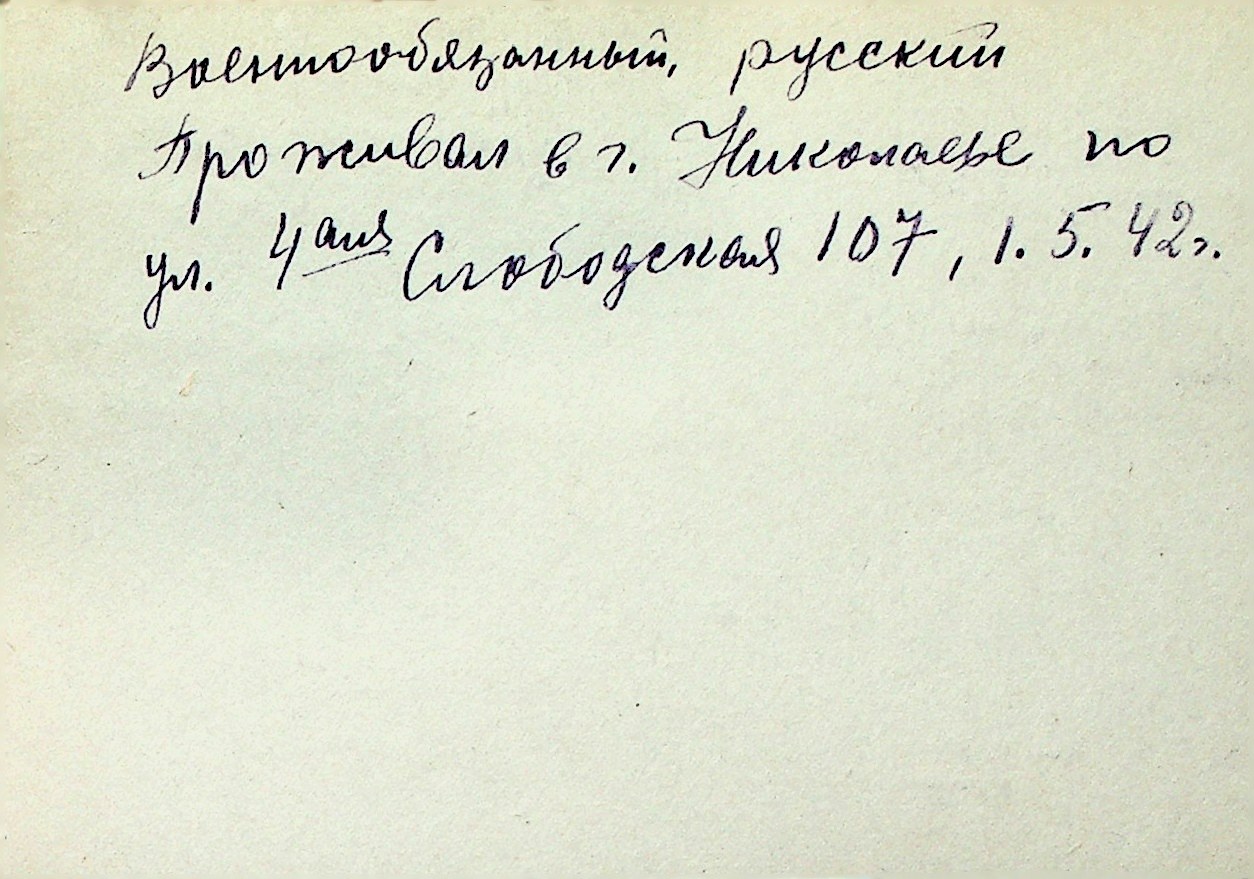 Военнообязанный, русский
Проживал в г. Николаеве по
ул. 4ая Слободская 107, 1.5.42г.